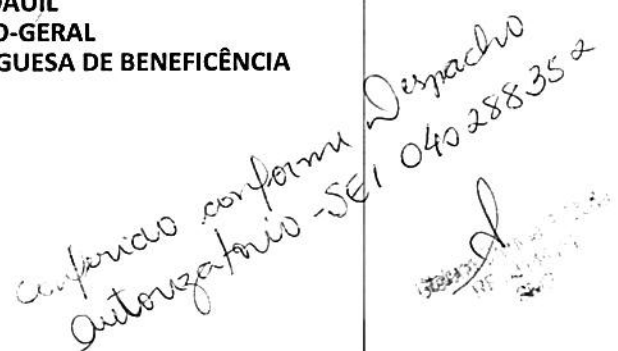 O-GERAL
GUESA DE BENEFICÊNCIA
conferido conforme Despacho
autorizatório - SEI 040288352